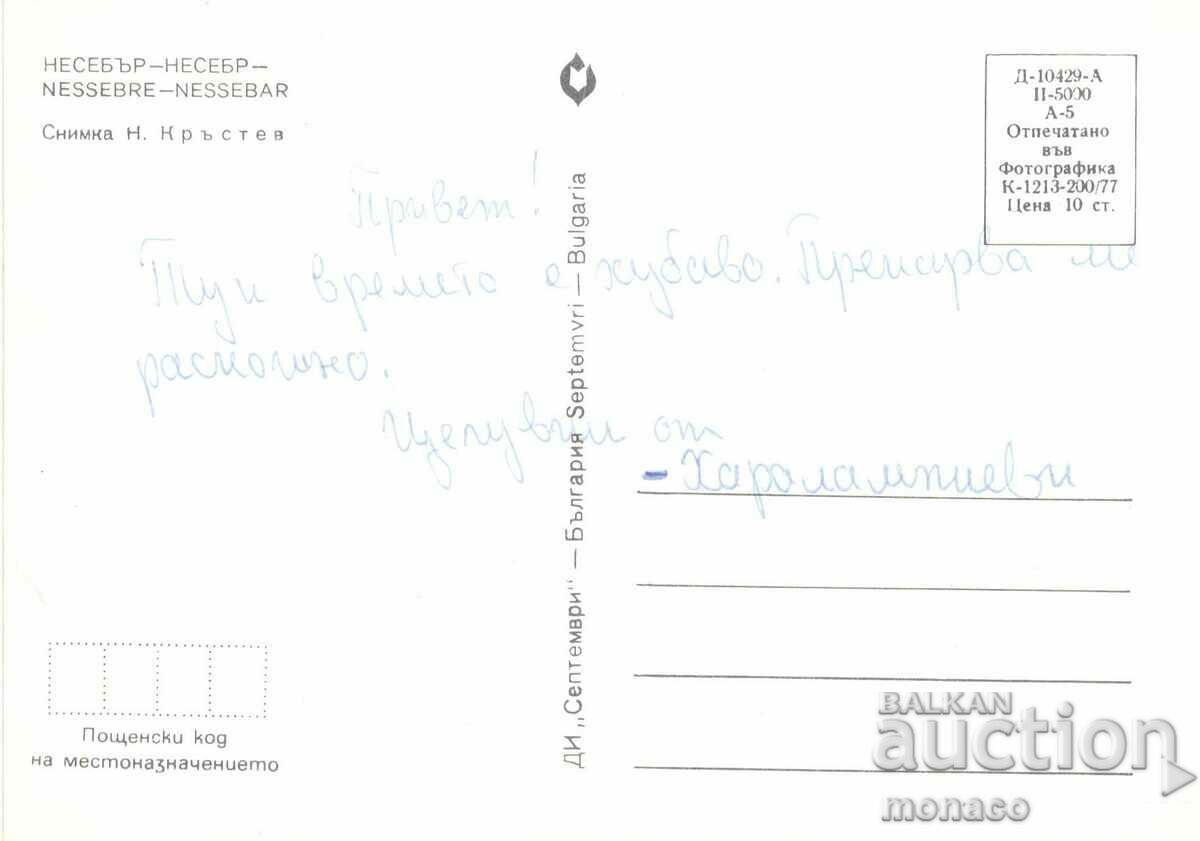 НЕСЕБЪР—НЕСЕБР—
NESSEBRE—NESSEBAR
Снимка Н. Кръстев
Д-10429-А
П-5000
А-5
Отпечатано
във
Фотографика
К-1213-200/77
Цена 10 ст.
Привет!
Тук времето е хубаво. Прекарва ме
разкошно.
Целувки от
- Харалампиеви
ДИ „Септември" — България Septemvri — Bulgaria
Пощенски код
на местоназначението
BALKAN
auction
monaco